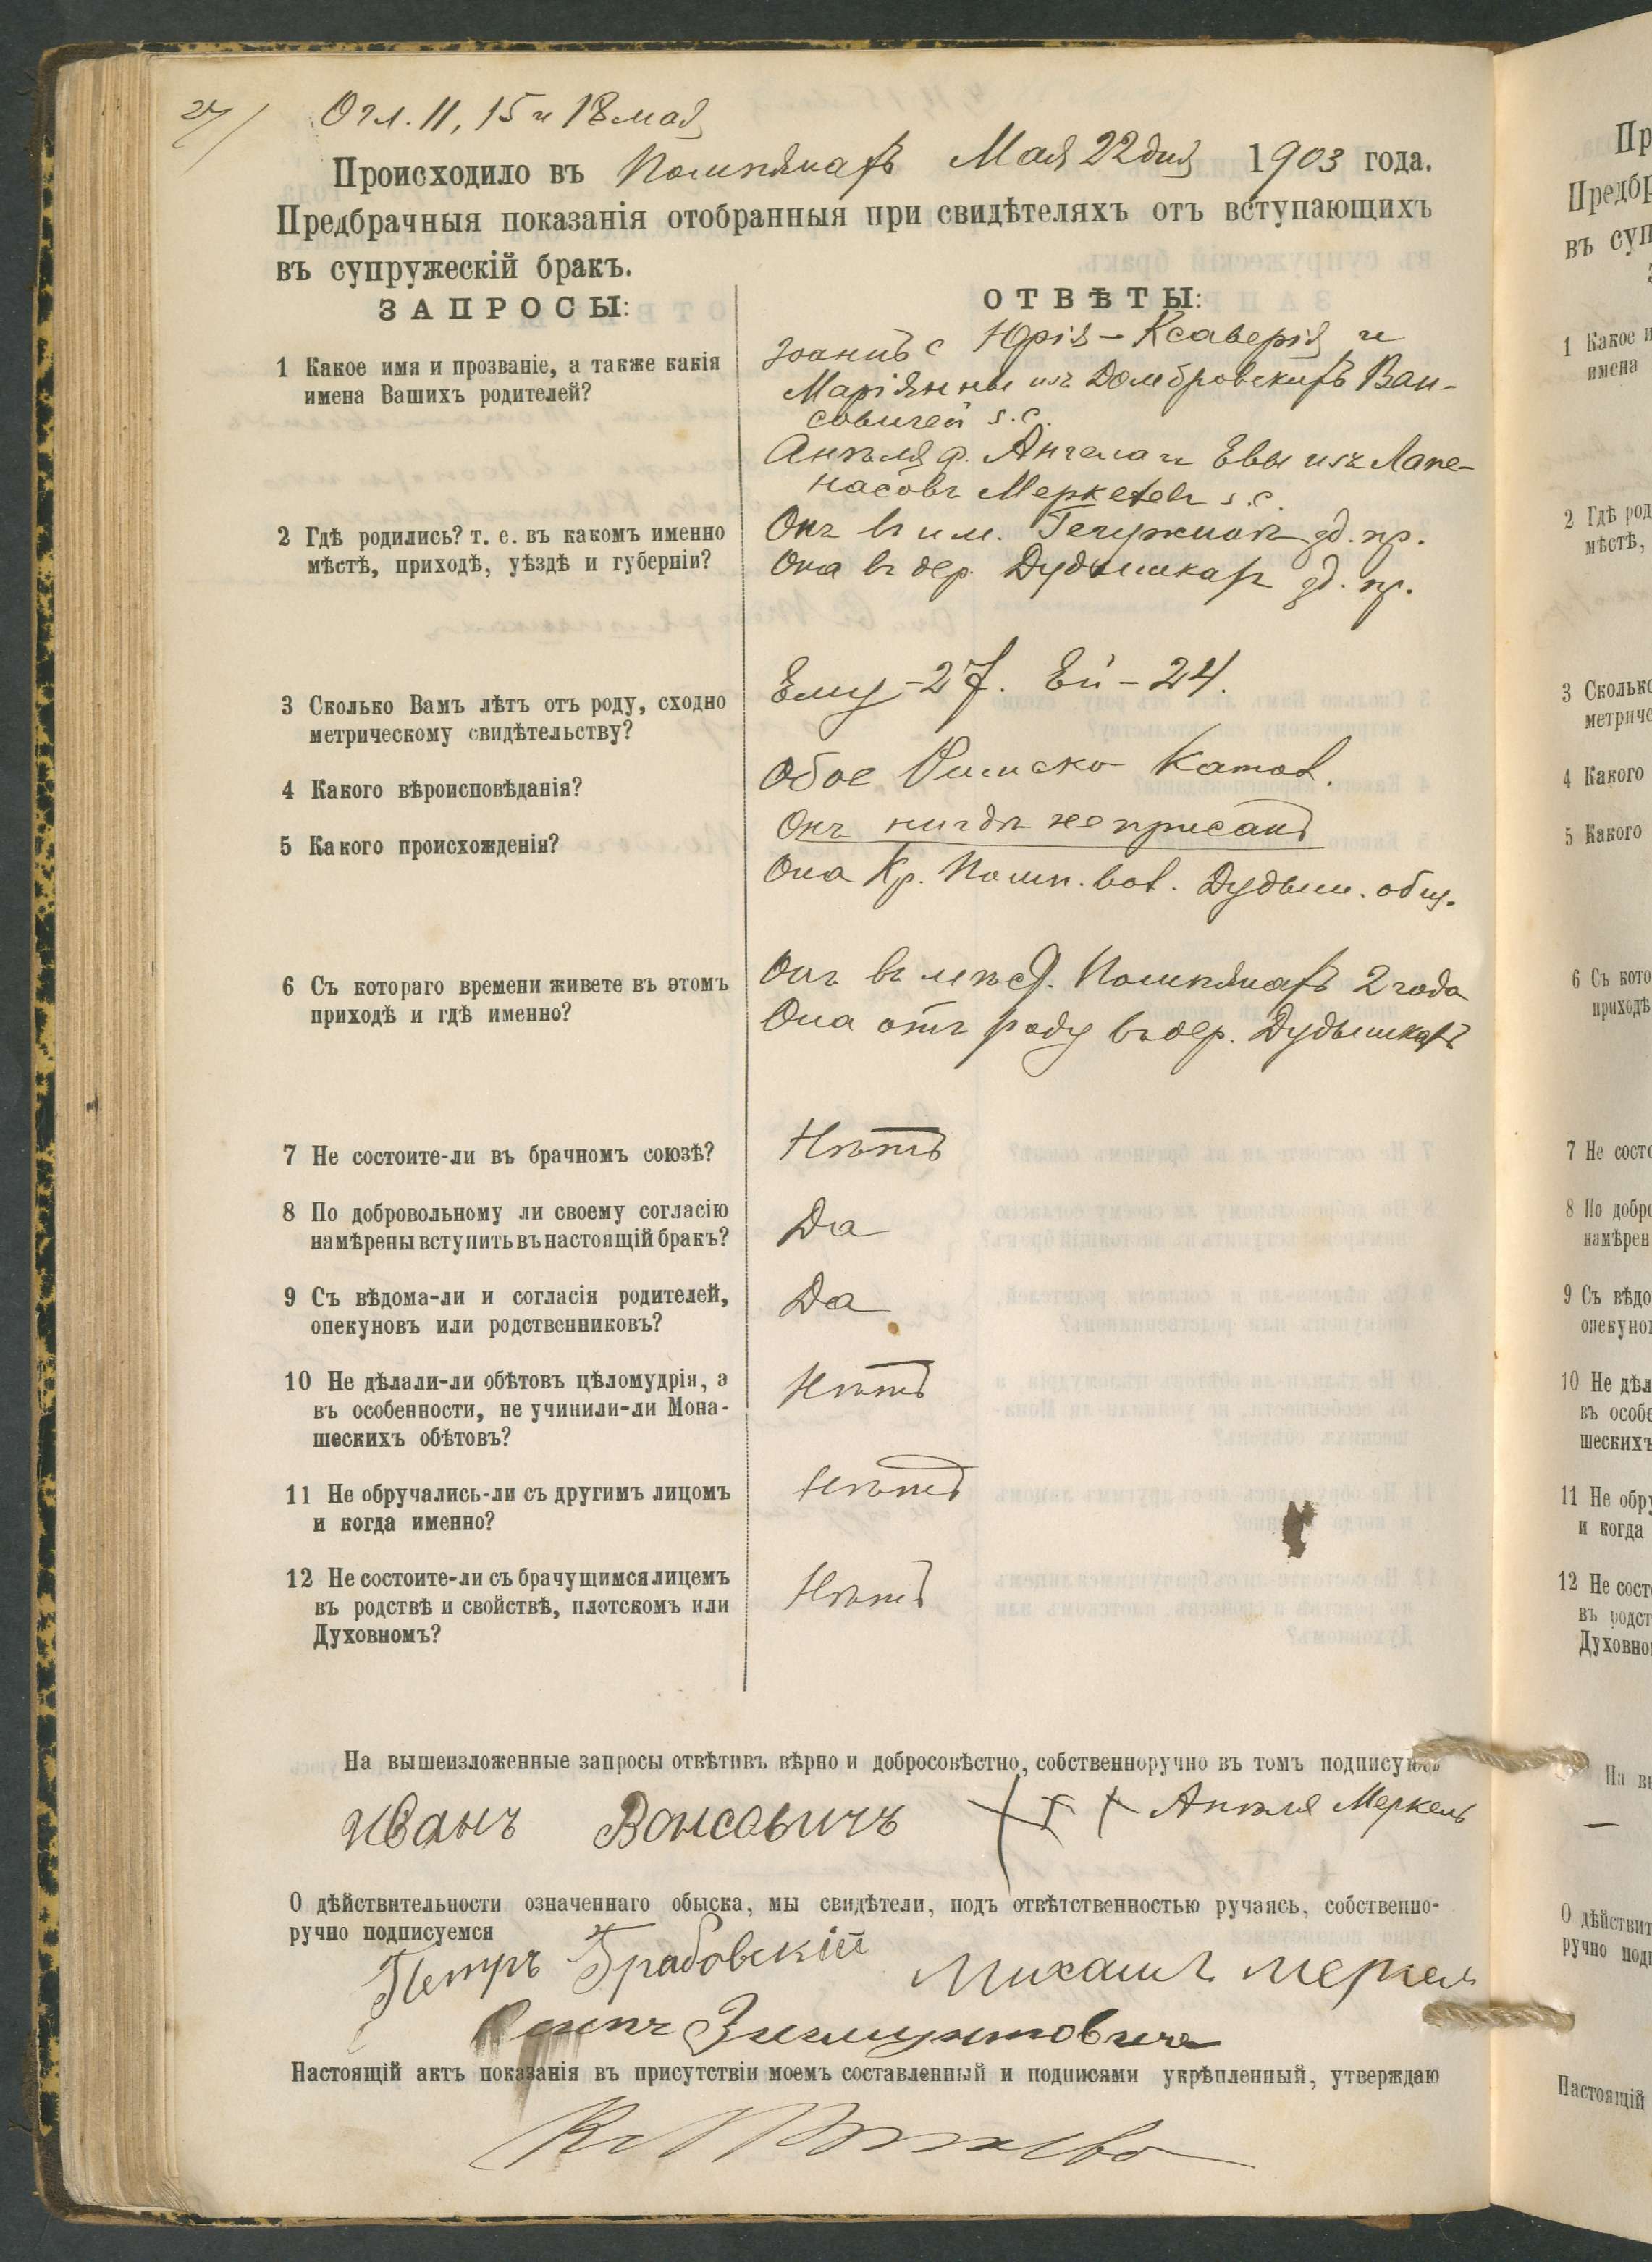 27/ Огл. 11, 15 и 18 мая
Происходило въ Помпянахъ Мая 22 дня 1903 года.
Предбрачныя показанія отобранныя при свидѣтеляхъ отъ вступающихъ
въ супружескій бракъ.
ЗАПРОСЫ:
ОТВѢТЫ:
1 Какое имя и прозваніе, а также какія
имена Вашихъ родителей?
Іоаннъ с Юрія-Ксаверія и
Маріянны изъ Домбровскихъ Ван-
совичей s.c.
Анѣля д. Ангела и Евы изъ Лапе-
насовъ Меркель s.c.
2 Гдѣ родились? т. е. въ какомъ именно
мѣстѣ, приходѣ, уѣздѣ и губерніи?
Онъ въ им. зд. пр.
Она въ дер. Дудышкахъ зд. пр.
3 Сколько Вамъ лѣтъ отъ роду, сходно
метрическому свидѣтельству?
Ему-27. Ей-24.
4 Какого вѣроисповѣданія?
Обое Римско Катол.
5 Какого происхожденія?
Онъ нигдѣ не присанъ
Она Кр. Помп. вол. Дудыш. общ.
6 Съ котораго времени живете въ этомъ
приходѣ и гдѣ именно?
Онъ въ мѣст. Помпянахъ 2 года
Она отъ роду въ дер. Дудышкахъ
7 Не состоите-ли въ брачномъ союзѣ?
Нѣтъ
8 По добровольному ли своему согласію
намѣрены вступить въ настоящій бракъ?
Да
9 Съ вѣдома-ли и согласія родителей,
опекуновъ или родственниковъ?
Да
10 Не дѣлали-ли обѣтовъ цѣломудрія, а
въ особенности, не учинили-ли Мона-
шескихъ обѣтовъ?
Нѣтъ
11 Не обручались-ли съ другимъ лицомъ
и когда именно?
Нѣтъ
12 Не состоите-ли съ брачущимся лицемъ
въ родствѣ и свойствѣ, плотскомъ или
Духовномъ?
Нѣтъ
На вышеизложенные запросы отвѣтивъ вѣрно и добросовѣстно, собственноручно въ томъ подписуюсь
Иванъ Вансовичъ + + + Анѣля Меркель
О дѣйствительности означеннаго обыска, мы свидѣтели, подъ отвѣтственностью ручаясь, собственно-
ручно подписуемся
Петръ Грабовскій Михаилъ Меркель
Осипъ Зигмунтовичъ
Настоящій актъ показанія въ присутствіи моемъ составленный и подписями укрѣпленный, утверждаю